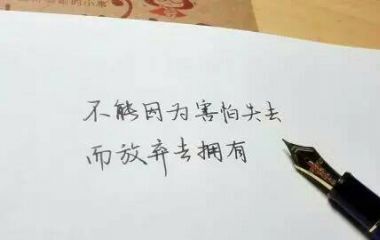 不能因为害怕失去
而放弃去拥有